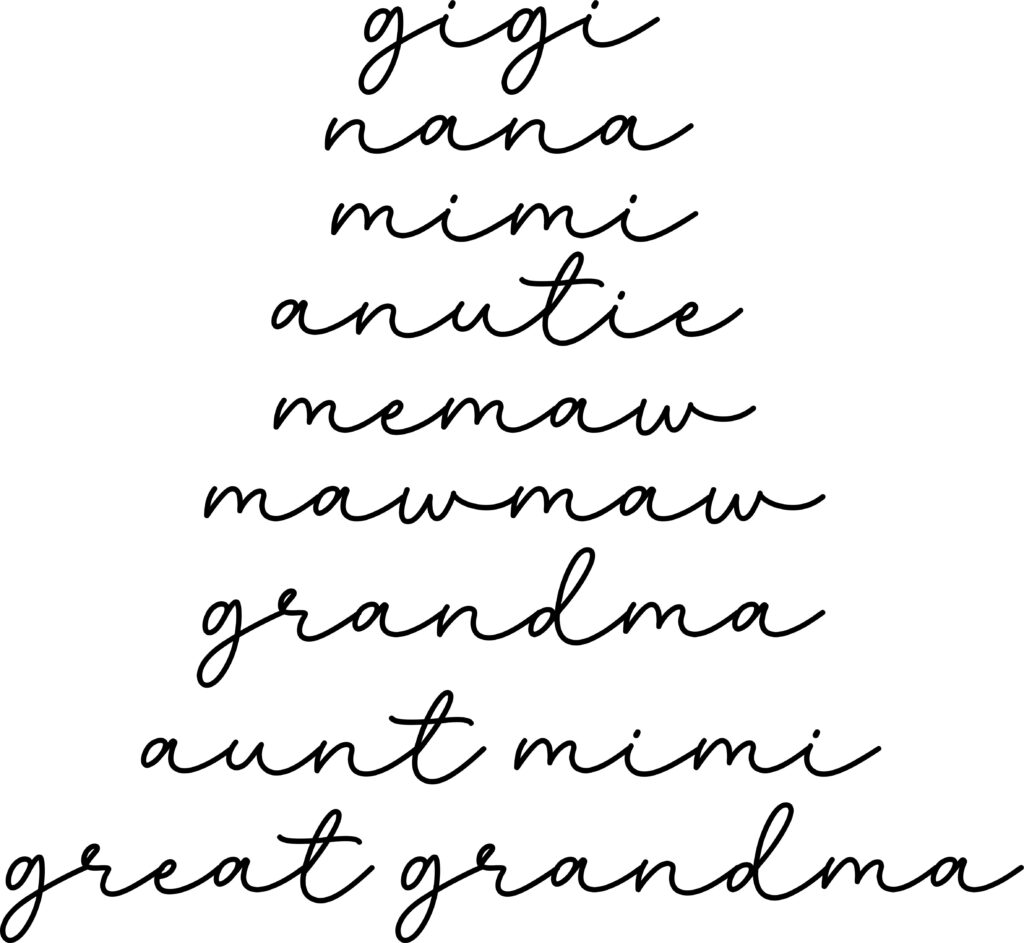 gigi
nana
mimi
anutie
memaw
mawmaw
grandma
aunt mimi
great grandma